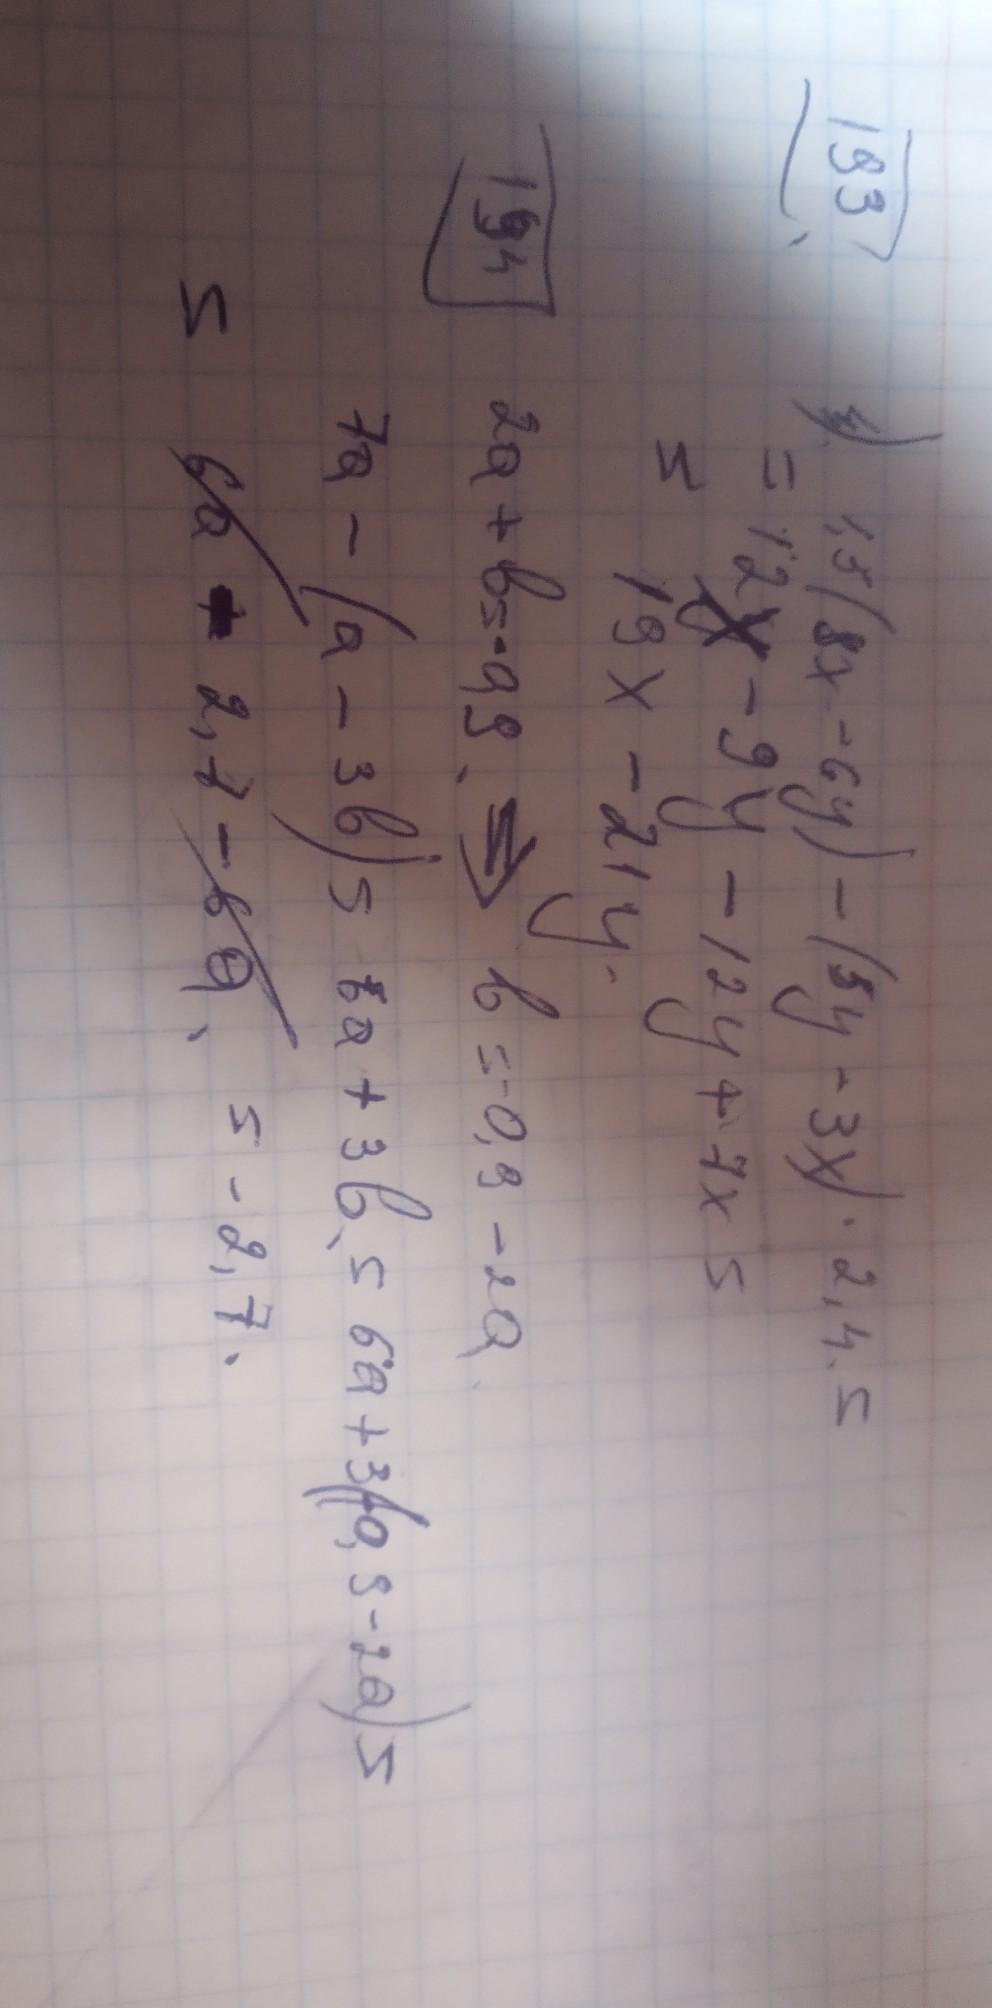 193
4) 1,5(8x - 6y) - (5y - 3x) · 2,4 =
= 12x - 9y - 12y + 7x =
= 19x - 21y.
194
2a + b = -0,9. ⇒ b = -0,9 - 2a
7a - (a - 3b) = 6a + 3b = 6a + 3(-0,9 - 2a) =
= 6a - 2,7 - 6a = -2,7.